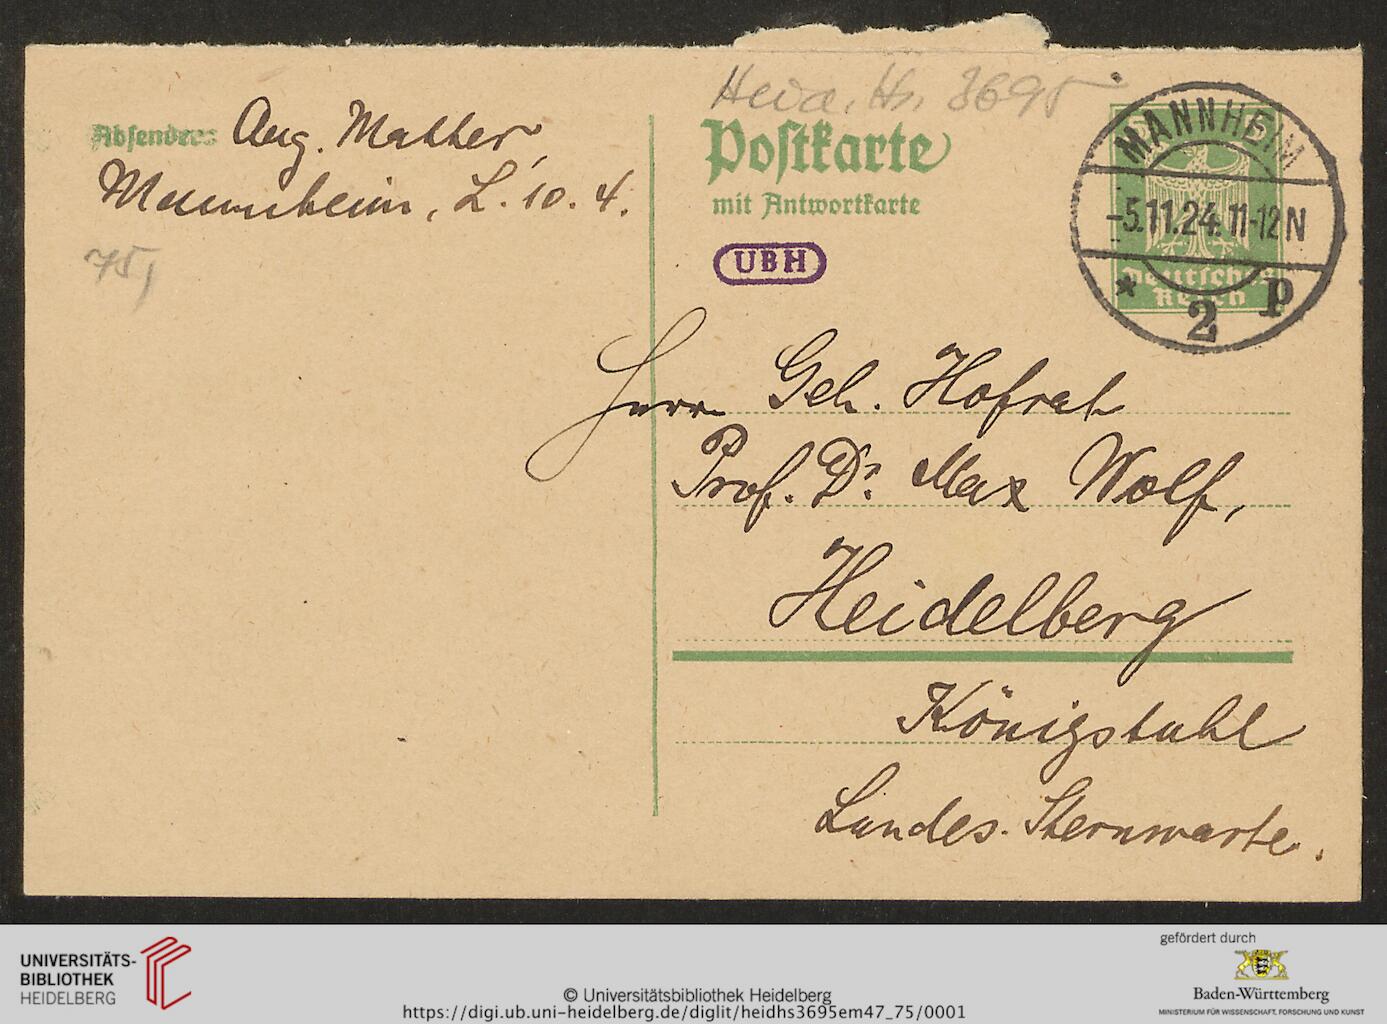 Heid. Hs. 3695
Absender: Aug. Matter,
Mannheim, L. 10. 4.
75,
Postkarte
mit Antwortkarte
UBH
MANNHEIM
-5.11.24. 11-12 N
* 2 P
Deutsches
Reich
Herrn Geh. Hofrat
Prof. Dr. Max Wolf,
Heidelberg
Königstuhl
Landes-Sternwarte.
UNIVERSITÄTS-
BIBLIOTHEK
HEIDELBERG
© Universitätsbibliothek Heidelberg
https://digi.ub.uni-heidelberg.de/diglit/heidhs3695em47_75/0001
gefördert durch
Baden-Württemberg
MINISTERIUM FÜR WISSENSCHAFT, FORSCHUNG UND KUNST